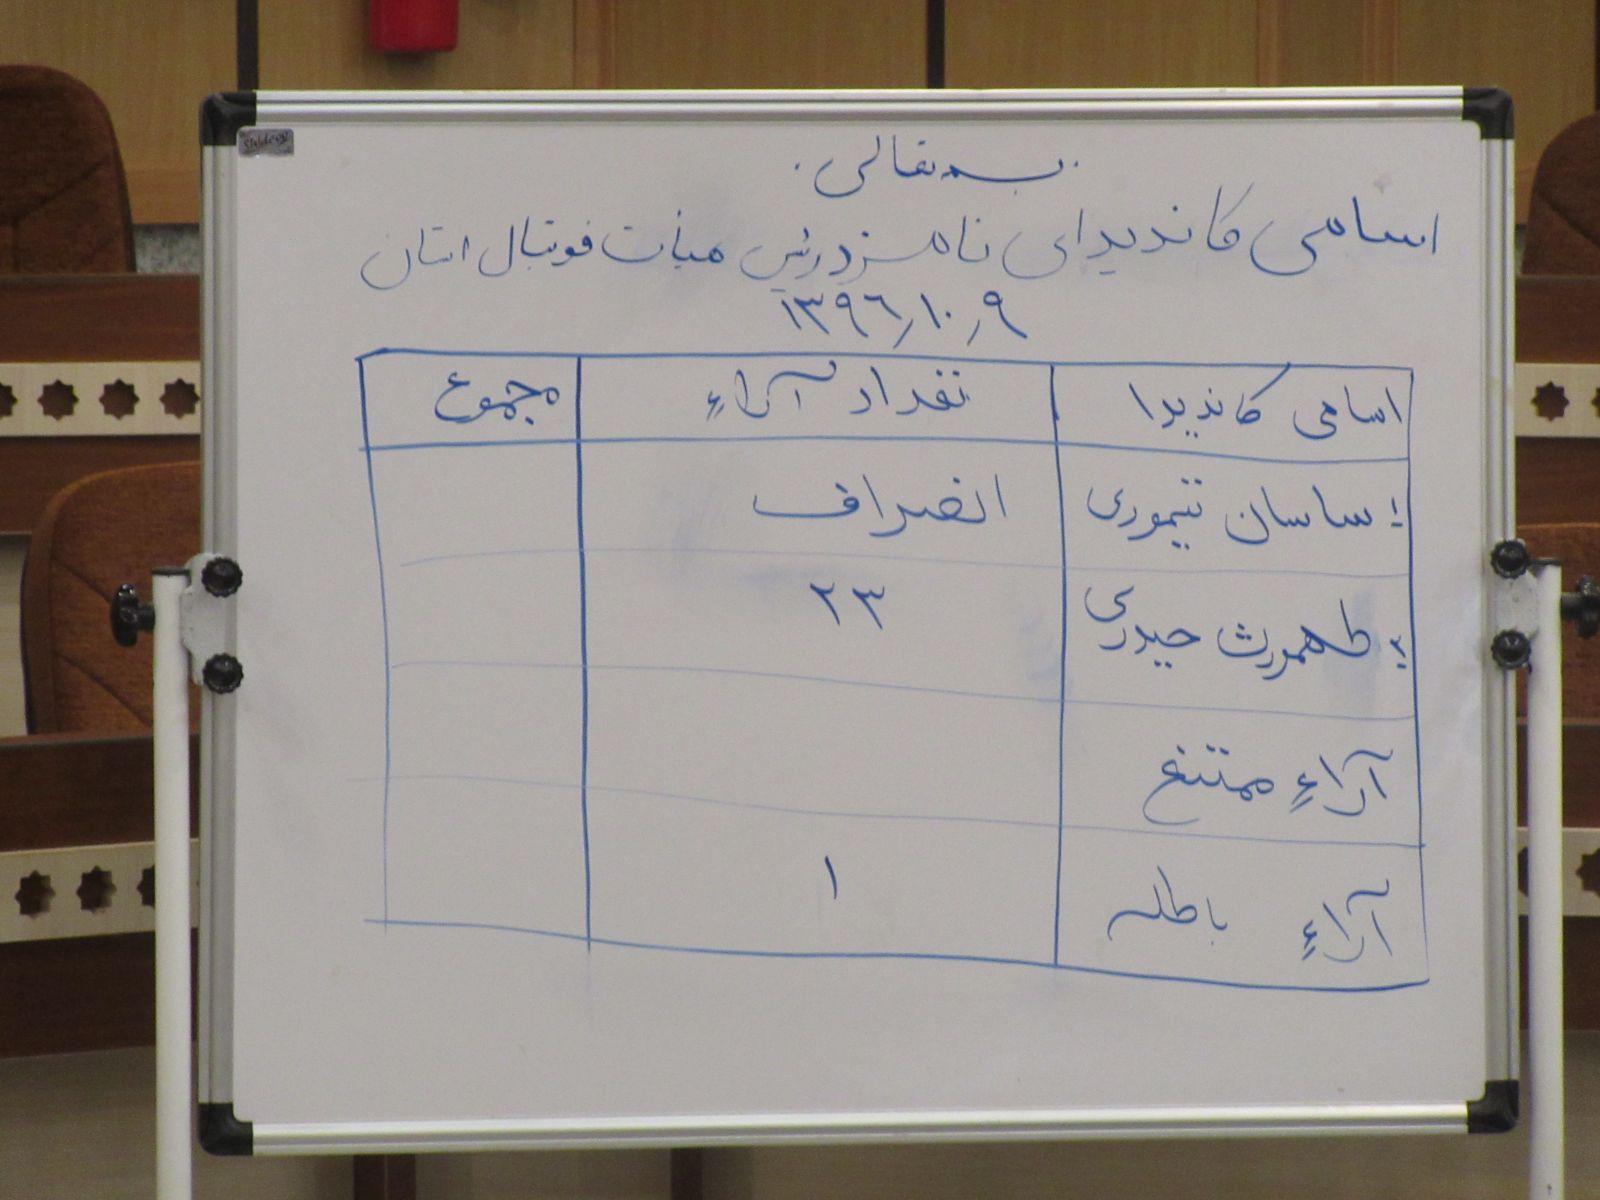 بسمه تعالی
اسامی کاندیدای نامزد رئیس هیأت فوتبال استان
۱۳۹۶/۱۰/۹
اسامی کاندیدا تعداد آراء مجموع
۱- ساسان تیموری انصراف
۲- طهمورث حیدری ۲۳
آراء ممتنع
آراء باطله ۱